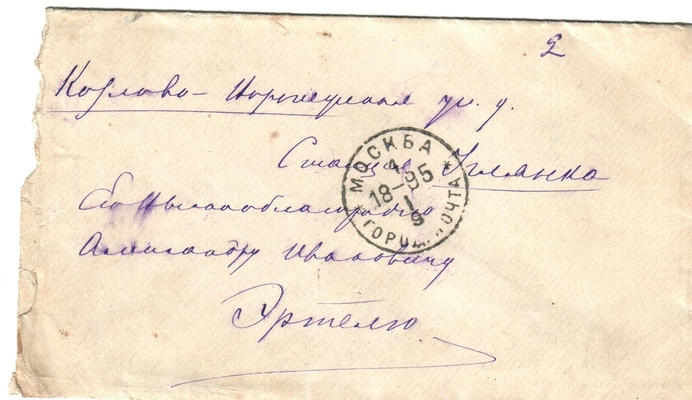 2
Козлово-Воронежская ж. д.
Станция Углянка
Его Высокоблагородию
Александру Ивановичу
Эртелю
МОСКВА
4
18-95
I
ГОРОД. ПОЧТА